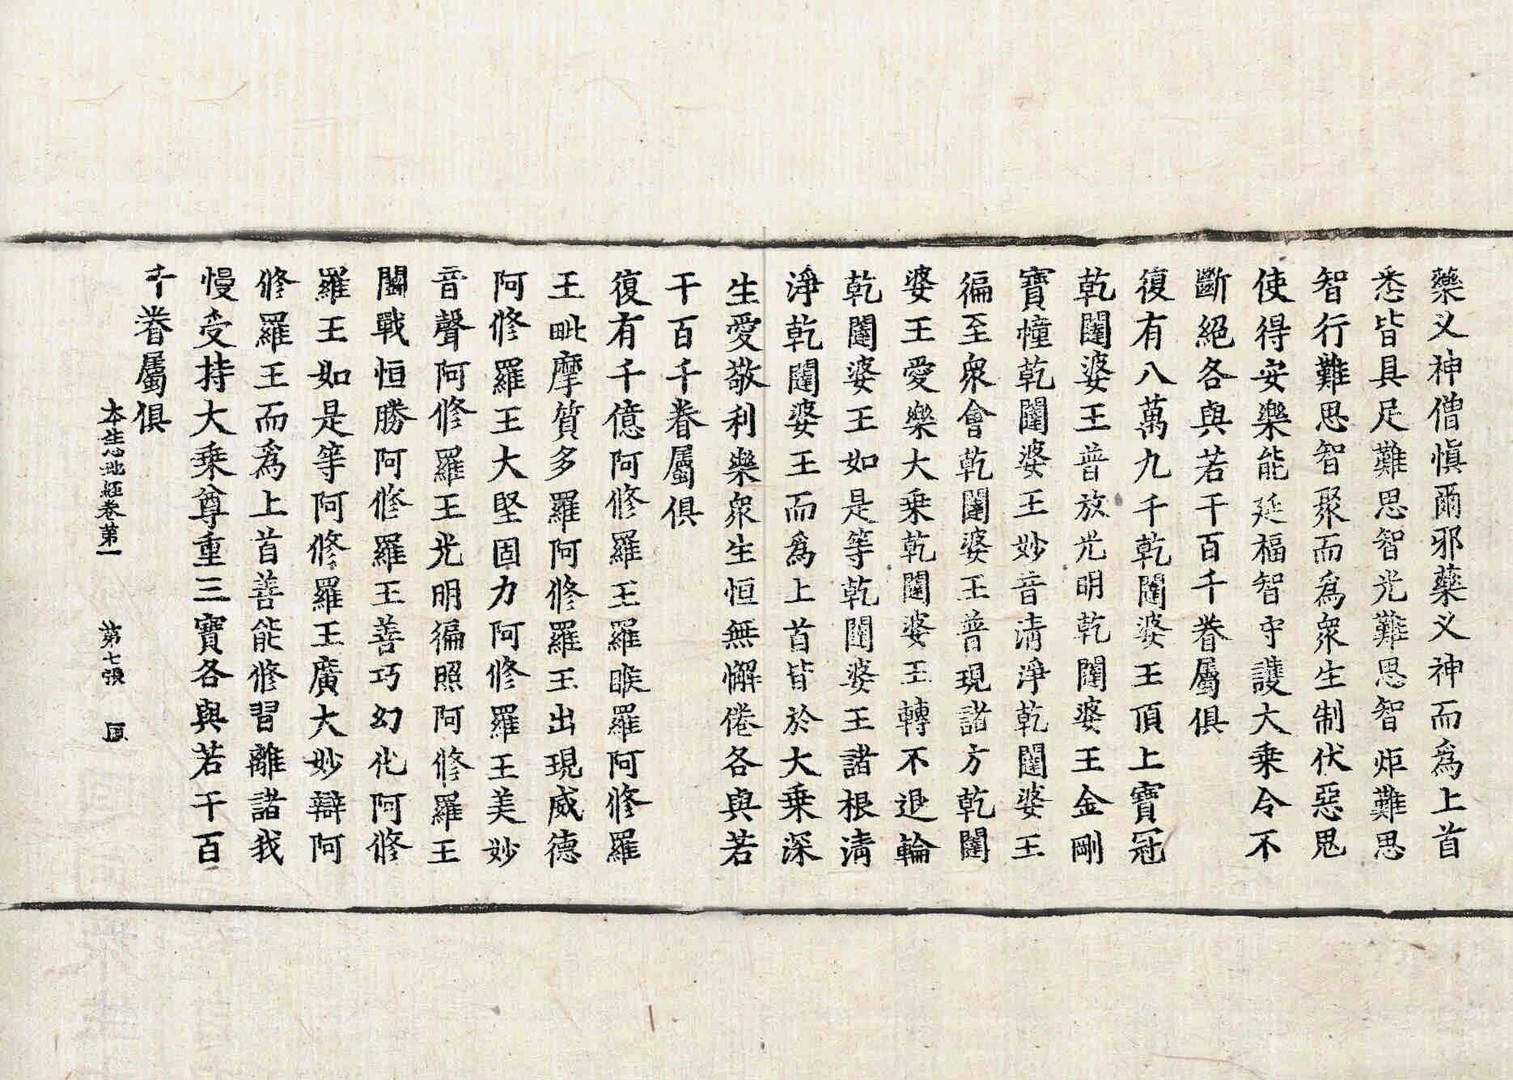 藥义神僧慎爾邪藥义神而為上首
悉皆具足難思智光難思智炬難思
智行難思智聚而為衆生制伏惡鬼
使得安樂能延福智守護大乘令不
斷絕各與若干百千眷屬俱
復有八萬九千乾闥婆王頂上寶冠
乾闥婆王普放光明乾闥婆王金剛
寶幢乾闥婆王妙音清淨乾闥婆王
徧至衆會乾闥婆王普現諸方乾闥
婆王愛樂大乘乾闥婆王轉不退輪
乾闥婆王如是等乾闥婆王諸根清
淨乾闥婆王而為上首皆於大乘深
生愛敬利樂衆生恒無懈倦各與若
干百千眷屬俱
復有千億阿修羅王羅睺羅阿修羅
王毗摩質多羅阿修羅王出現威德
阿修羅王大堅固力阿修羅王美妙
音聲阿修羅王光明徧照阿修羅王
鬪戰恒勝阿修羅王善巧幻化阿修
羅王如是等阿修羅王廣大妙辯阿
修羅王而為上首善能修習離諸我
慢受持大乘尊重三寶各與若干百
千眷屬俱
本生心地經卷第一 第七張